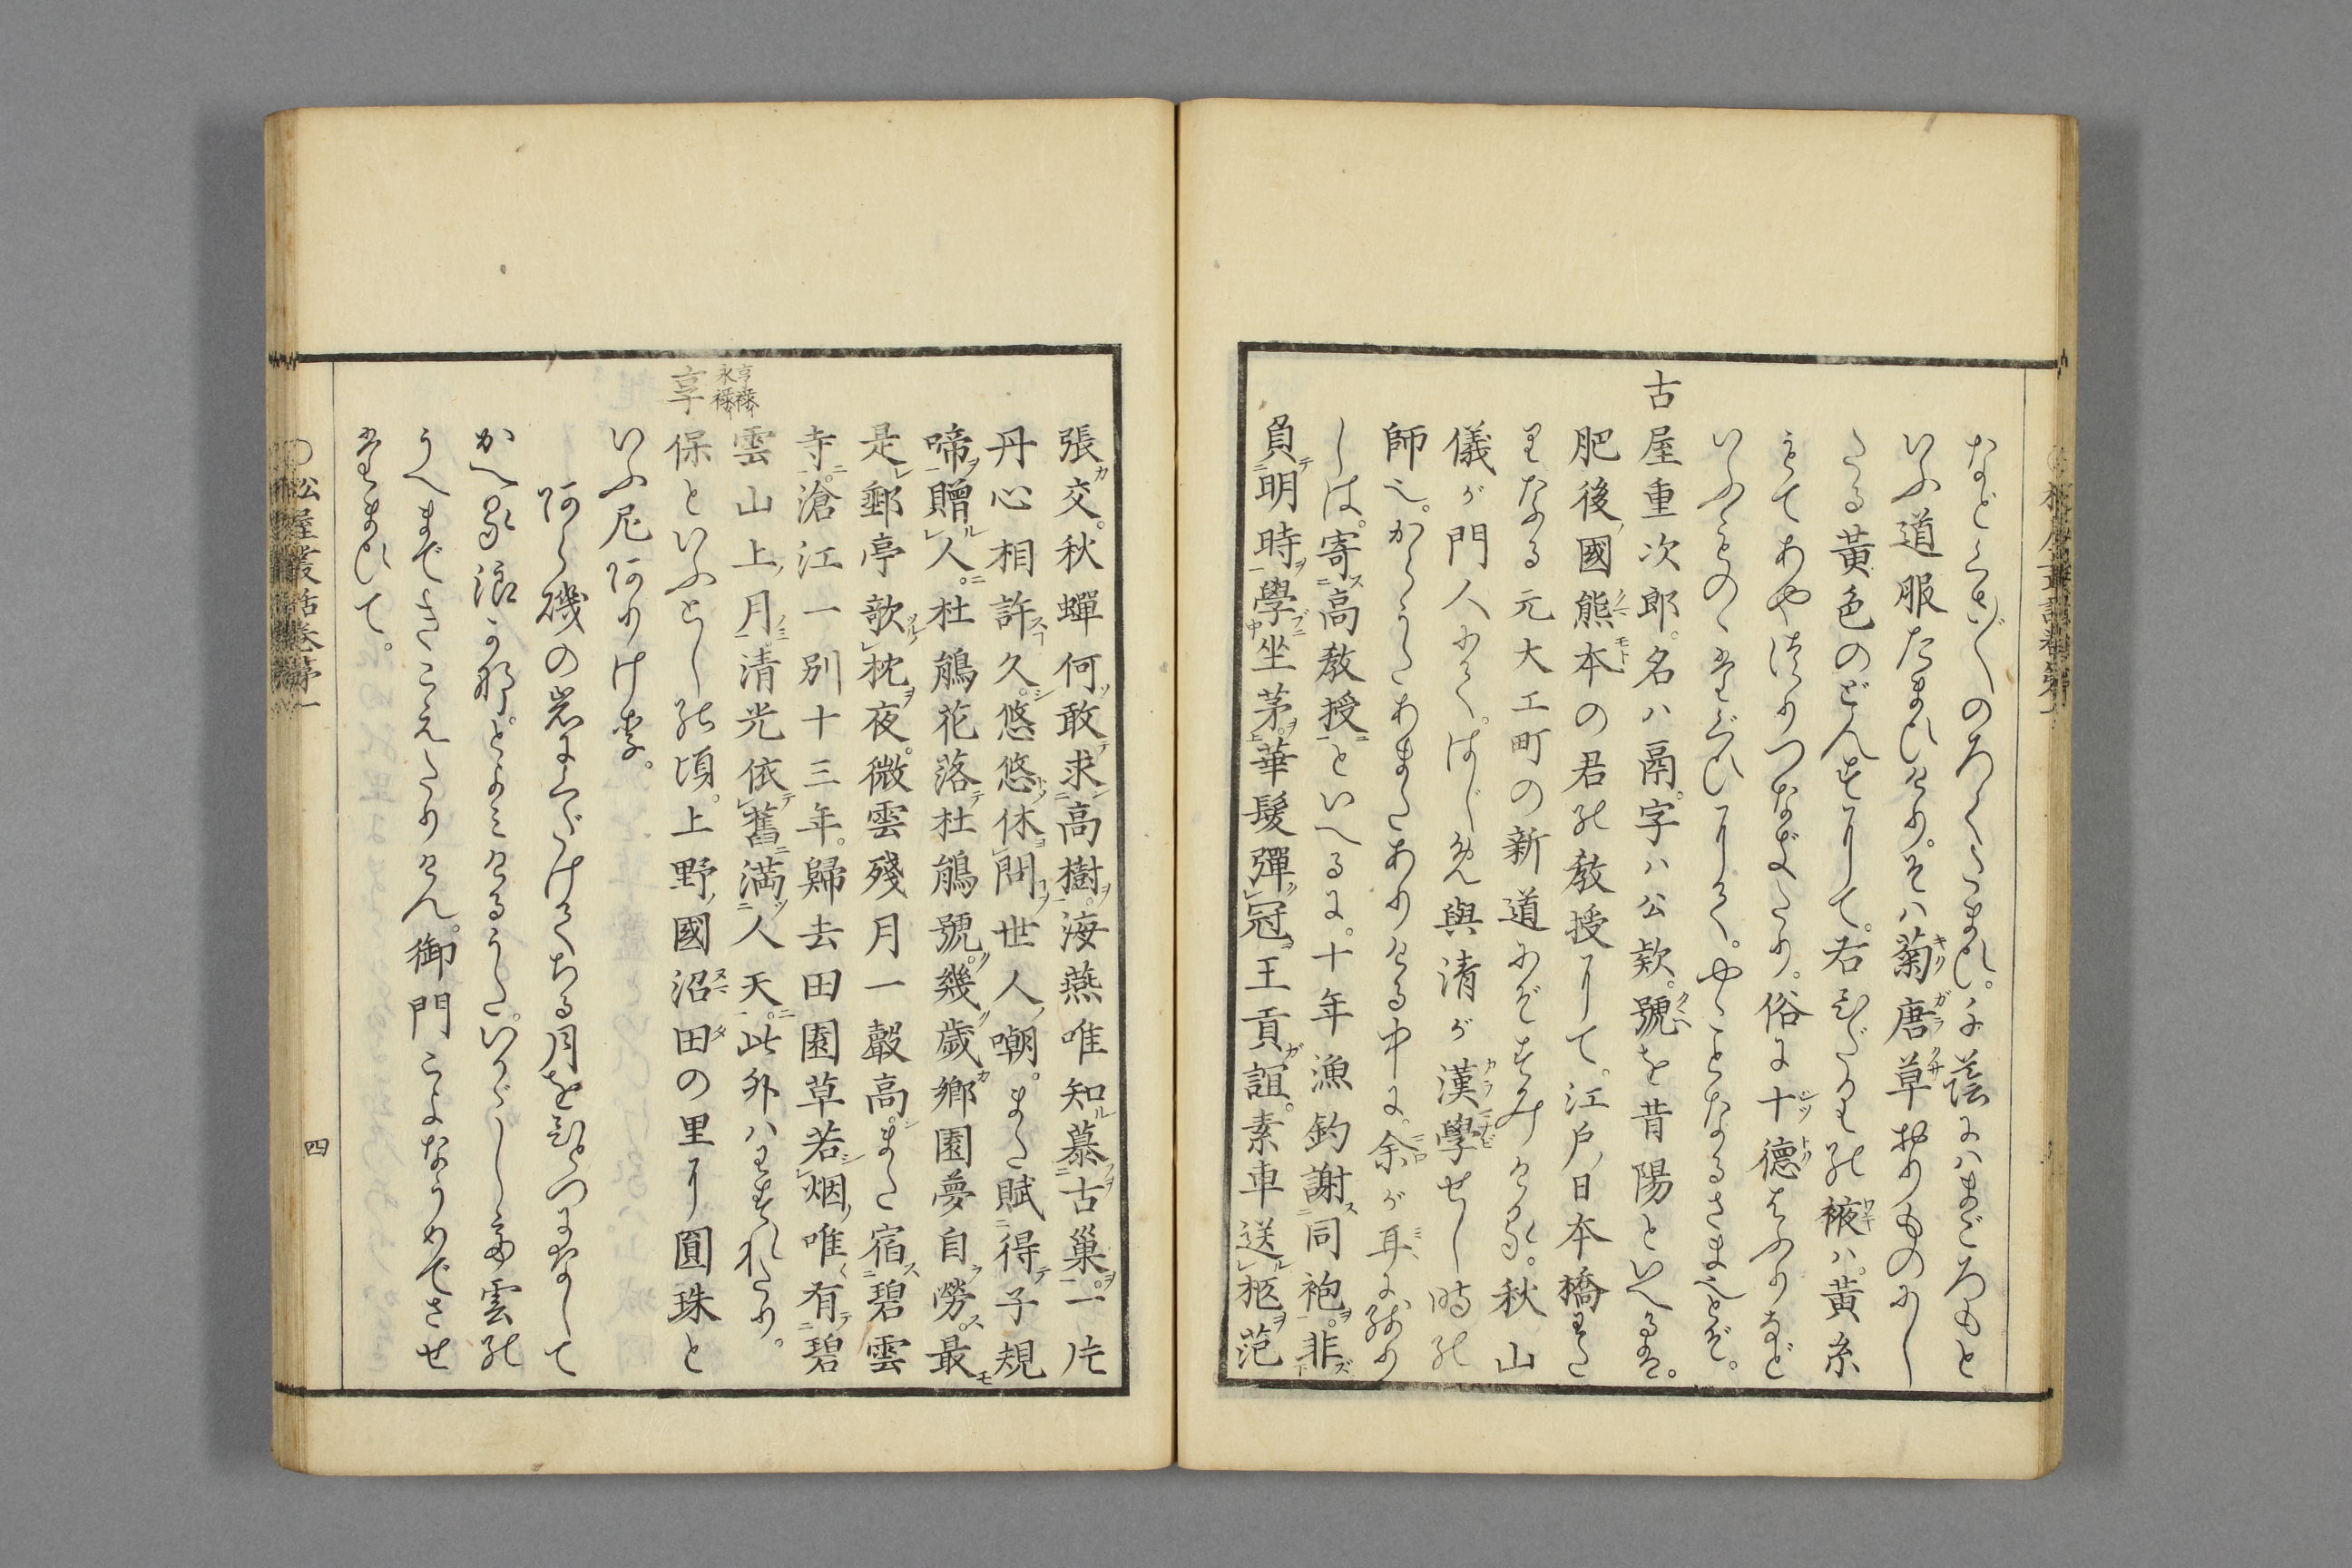 いふ道服たまひけり。そハ菊唐草おりものにし
たる黄色のどんすにて。右ひだりの掖ハ黄糸
もてあやはりつなぎたり。俗に十德はふりなど
いふものゝたぐひにて。やゝことなるさま也とぞ。
古屋重次郎。名ハ鬲。字ハ公款。號を昔陽といへるは。
肥後國熊本の君の教授にて。江戸日本橋わた
りなる元大工町の新道にぞすみける。秋山
儀が門人にて。はじめ與清が漢學せし時の
師也。からうたあまたありける中に。余が耳に殘り
しは。寄高教授といへるに。十年漁釣謝同袍。非
負明時學坐茅。華髮彈冠王貢誼。素車送柩范
張交。秋蟬何敢求高樹。海燕唯知慕古巢。一片
丹心相許久。悠悠休問世人嘲。また賦得子規
啼贈人。杜鵑花落杜鵑號。幾歲鄉園夢自勞。最
是郵亭欹枕夜。微雲殘月一聲高。また宿碧雲
寺。滄江一別十三年。歸去田園草若烟。唯有碧
雲山上月。清光依舊滿人天。此外ハわすれたり。
享保といふとしの頃。上野國沼田の里に圓珠と
亨祿
永祿
いふ尼ありけり。
あら磯の岩にくだけてちる月をひとつになして
かへる浪かな。とよみけるうた。いかゞしけむ雲の
うへまできこえたりけん。御門ことなうめでさせ
たまひて。
〇松屋叢話卷第一
四